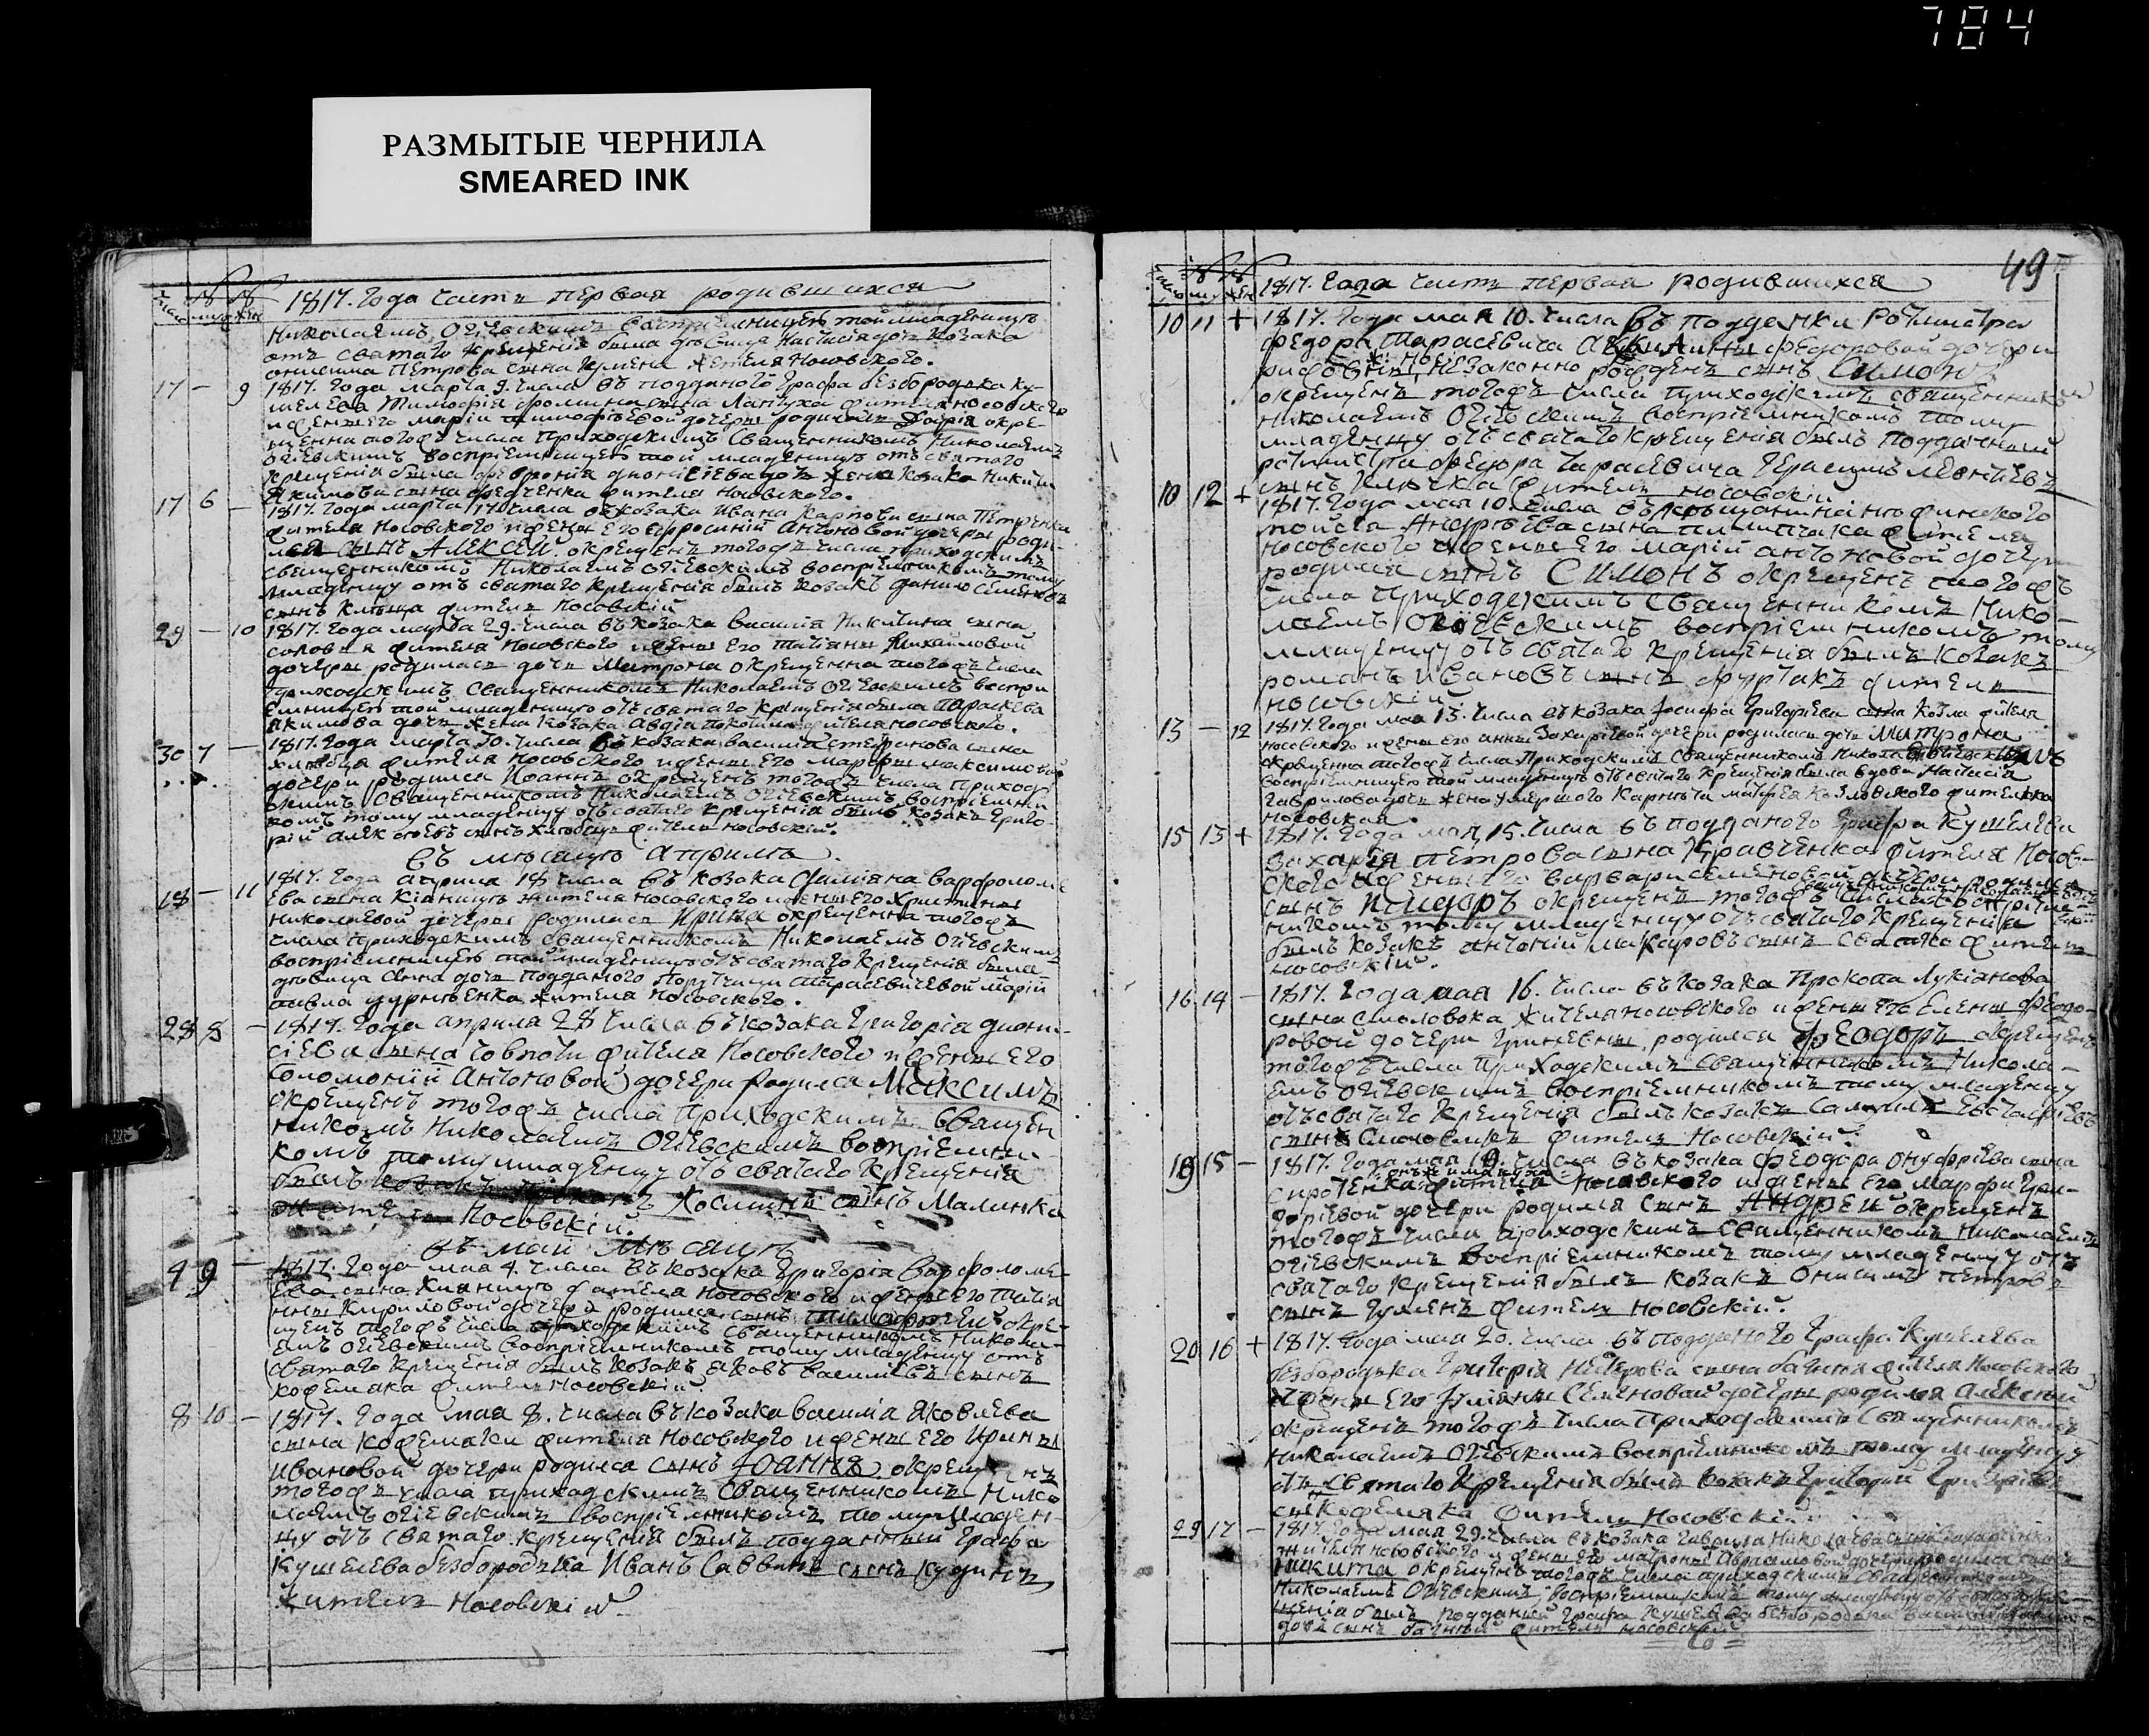 784
РАЗМЫТЫЕ ЧЕРНИЛА
SMEARED INK
1817. Года часть первая родившихся
Николаемъ Огіевскимъ восприемницею той младеницу
отъ святаго крещенія была девица Настасія дочь козака
онисима Петрова сына жителя Носовского.
17 — 9 1817. Года марта числа въ подданого Графа безбородька ку-
шелева Тимофія сына жителя носовского
и жены его Маріи тимофіевой дочеры родилась Марія окре-
щенна тогожъ числа Приходскимъ Священникомъ Николаемъ
огіевскимъ восприемницею той младеницу отъ святаго
крещенія была февронія дионисіева дочь жена козака Никиты
Якимова сына федченка жителя Носовского.
17 6 — 1817. Года марта 17 числа въ козака Ивана Карпова сына Петренка
жителя Носовского и жены его Ефросиній Антоновой дочеры роди-
лся сынъ АЛЕКСЕЙ окрещенъ тогожъ числа приходскимъ
священникомъ Николаемъ Огіевскимъ восприемникомъ тому
младенцу отъ святаго крещенія былъ козакъ данило Семеновъ
сынъ житель Носовскій
29 — 10 1817. Года марта 29. числа въ козака Василія Никитина сына
соловья жителя Носовского и жены его Татіаны Михайловой
дочеры родилась дочь Матрона окрещенна тогожъ числа
Приходскимъ Священникомъ Николаемъ Огіевскимъ воспри
емницею той младеницу отъ святаго крещенія была Параскева
Якимова дочь жена козака Авдія жителя носовского.
30 7 — 1817. Года марта 30. числа въ козака василія стефанова сына
жителя Носовского и жены его Марфы максимовой
дочери родился Иоаннъ окрещенъ тогожъ числа Приход
скимъ Священникомъ Николаемъ Огіевскимъ восприемни
комъ тому младенцу отъ святаго крещенія былъ козакъ Григо-
рій сынъ житель носовскій.
въ месяцю Априлѣ.
18 — 11 1817. Года априля 18 числа въ козака Даміана варфоломе
ева сына Кіяницы жителя носовского и жены его Христины
николаевой дочеры родилась Ирина окрещенна тогожъ
числа приходскимъ священникомъ Николаемъ Огіевскимъ
восприемницею той младеницу отъ святаго крещенія была
девица Анна дочь подданого Порутчици Тарасевичевой Марій
павла жителя Носовского.
28 8 — 1817. Года априля 28 числа въ козака Григорія диони-
сіева сына жителя Носовского и жены его
Соломоній Антоновой дочери родился Максимъ
окрещенъ тогожъ числа Приходскимъ Священ
никомъ Николаемъ Огіевскимъ восприемни-
комъ тому младенцу отъ святаго крещенія
былъ козакъ Хомининъ сынъ Малинка
житель Носовскій.
въ май месяцѣ
4 9 — 1817. Года мая 4. числа въ козака Григорія Варфоломе-
ева сына Кияницы жителя носовского и жены его Татія
ны Кириловой дочери родился сынъ Тимофтей окре-
щенъ тогожъ числа приходскимъ священникомъ Никола-
емъ Огіевскимъ восприемникомъ тому младенцу отъ
святаго крещенія былъ козакъ яковъ василіевъ сынъ
кожемяка житель Носовскій.
8 10 — 1817. Года мая 8. числа въ козака василія Яковлева
сына кожемяки жителя Носовского и жены его Ирины
Ивановой дочери родился сынъ Іоаннъ окрещенъ
тогожъ числа приходскимъ священникомъ Нико
лаемъ огіевскимъ восприемникомъ тому младен-
цу отъ святаго крещенія былъ подданный Графа
Кушелева безбородька Иванъ Саввинъ сынъ
житель Носовскій.
49
1817. Года часть первая родившихся
10 11 + 1817. Года мая 10. числа въ подданки Ротмистра
федора Тарасевича Акилины федоровой дочери
незаконно рожденъ сынъ Симонъ
окрещенъ тогожъ числа приходскимъ священникомъ
николаемъ Огіевскимъ восприемникомъ тому
младенцу отъ святаго крещенія былъ подданный
ротмистра федора тарасевича Герасимъ леонтіевъ
сынъ Ключка житель носовскій
10 12 + 1817. Года мая 10. числа въ мещанина нѣжинского
моисея Андрѣева сына жителя
Носовского и жены его Марій антоновой дочери
родился сынъ СИМОНЪ окрещенъ тогожъ
числа приходскимъ священникомъ Нико-
лаемъ Огіевскимъ восприемникомъ тому
младенцу отъ святаго крещенія былъ козакъ
романъ ивановъ сынъ житель
носовскій
13 — 12 1817. Года мая 13. числа въ козака Іосифа Григоріева сына Козла жителя
носовского и жены его анны Захаріевой дочери родилась дочь Матрона
окрещенна тогожъ числа Приходскимъ Священникомъ Николаемъ Огіевскимъ
восприемницею той младеницу отъ святаго крещенія была вдова Настасія
Гаврилова дочь жена умершаго матфея Козловского жителка
носовская.
15 13 + 1817. Года мая 15. числа въ подданого Графа Кушелева
Захарія петрова сына Кравченка жителя Носов-
ского и жены его варвари семеновой дочери родился
сынъ Исидоръ окрещенъ тогожъ числа восприем-
никомъ тому младенцу отъ святаго крещенія
былъ козакъ антоній макаровъ сынъ житель
носовскій.
16 14 — 1817. Года мая 16. числа въ козака Прокопа Лукіянова
сына жителя носовского и жены его Елены феодо-
ровой дочери родился Феодоръ окрещенъ
тогожъ числа приходскимъ священникомъ Никола-
емъ огіевскимъ восприемникомъ тому младенцу
отъ святаго крещенія былъ козакъ Самуилъ Евстафіевъ
сынъ житель Носовскій.
19 15 — 1817. Года мая 19. числа въ козака Феодора Онуфріева сына
сиротенка Носовского и жены его марфи Гри-
горіевой дочери родился сынъ АНДРЕЙ окрещенъ
тогожъ числа приходскимъ священникомъ николаемъ
огіевскимъ восприемникомъ тому младенцу отъ
святаго крещенія былъ козакъ Онисимъ петровъ
сынъ житель носовскій.
20 16 + 1817. Года мая 20. числа въ подданого Графа Кушелева
безбородька Григорія Несторова сына жителя Носовского
и жены его Уліяны Семеновой дочеры родился Алексій
окрещенъ тогожъ числа приходскимъ священникомъ
николаемъ огіевскимъ восприемникомъ тому младенцу
отъ святаго крещенія былъ козакъ Григорій Григоріевъ
сынъ кожемяка житель Носовскій.
29 17 — 1817. Года мая 29. числа въ козака Гаврила Николаева
жителя носовского и жены его матроны Абрамовой дочери родился сынъ
Никита окрещенъ тогожъ числа приходскимъ священникомъ
Николаемъ Огіевскимъ восприемникомъ тому младенцу отъ святаго кре-
щенія былъ подданый Графа Кушелева безбородька
сынъ житель носовскій